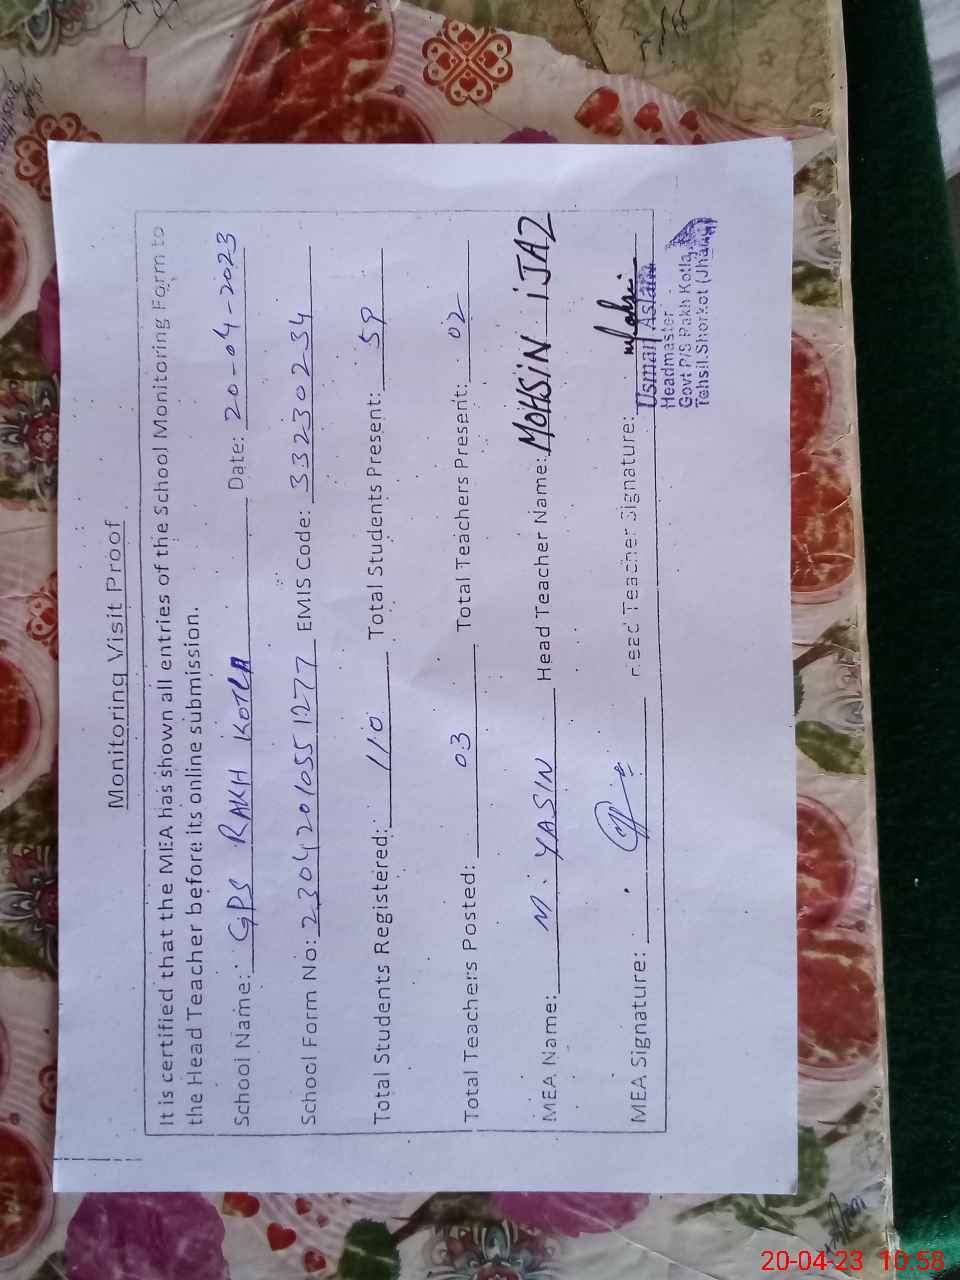 Monitoring Visit Proof
It is certified that the MEA has shown all entries of the School Monitoring Form to
the Head Teacher before its online submission.
School Name: GPS RAKH KOTLA Date: 20-04-2023
School Form No: 23042010551277 EMIS Code: 33230234
Total Students Registered: 110 Total Students Present: 59
Total Teachers Posted: 03 Total Teachers Present: 02
MEA Name: M. YASIN Head Teacher Name: MOHSiN iJAZ
MEA Signature: Head Teacher Signature:
Usmail Aslam
Headmaster
Govt P/S Rakh Kotla
Tehsil Shorkot (Jhang)
20-04-23 10:58